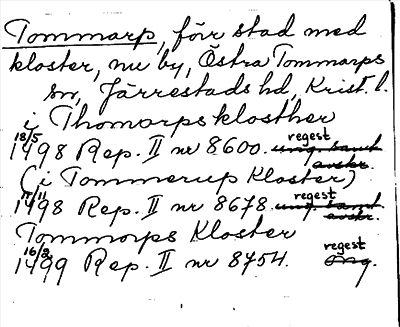 Tommarp, förr stad med
kloster, nu by, Östra Tommarps
sn, Järrestads hd, Krist. l.
i Thomorpsklosther
18/5 1498 Rep. II nr 8600. regest orig. samt avskr.
(i Tommerup Kloster)
17/11 1498 Rep. II nr 8678. regest orig. samt avskr.
Tommorps Kloster
16/2 1499 Rep. II nr 8754. regest Orig.